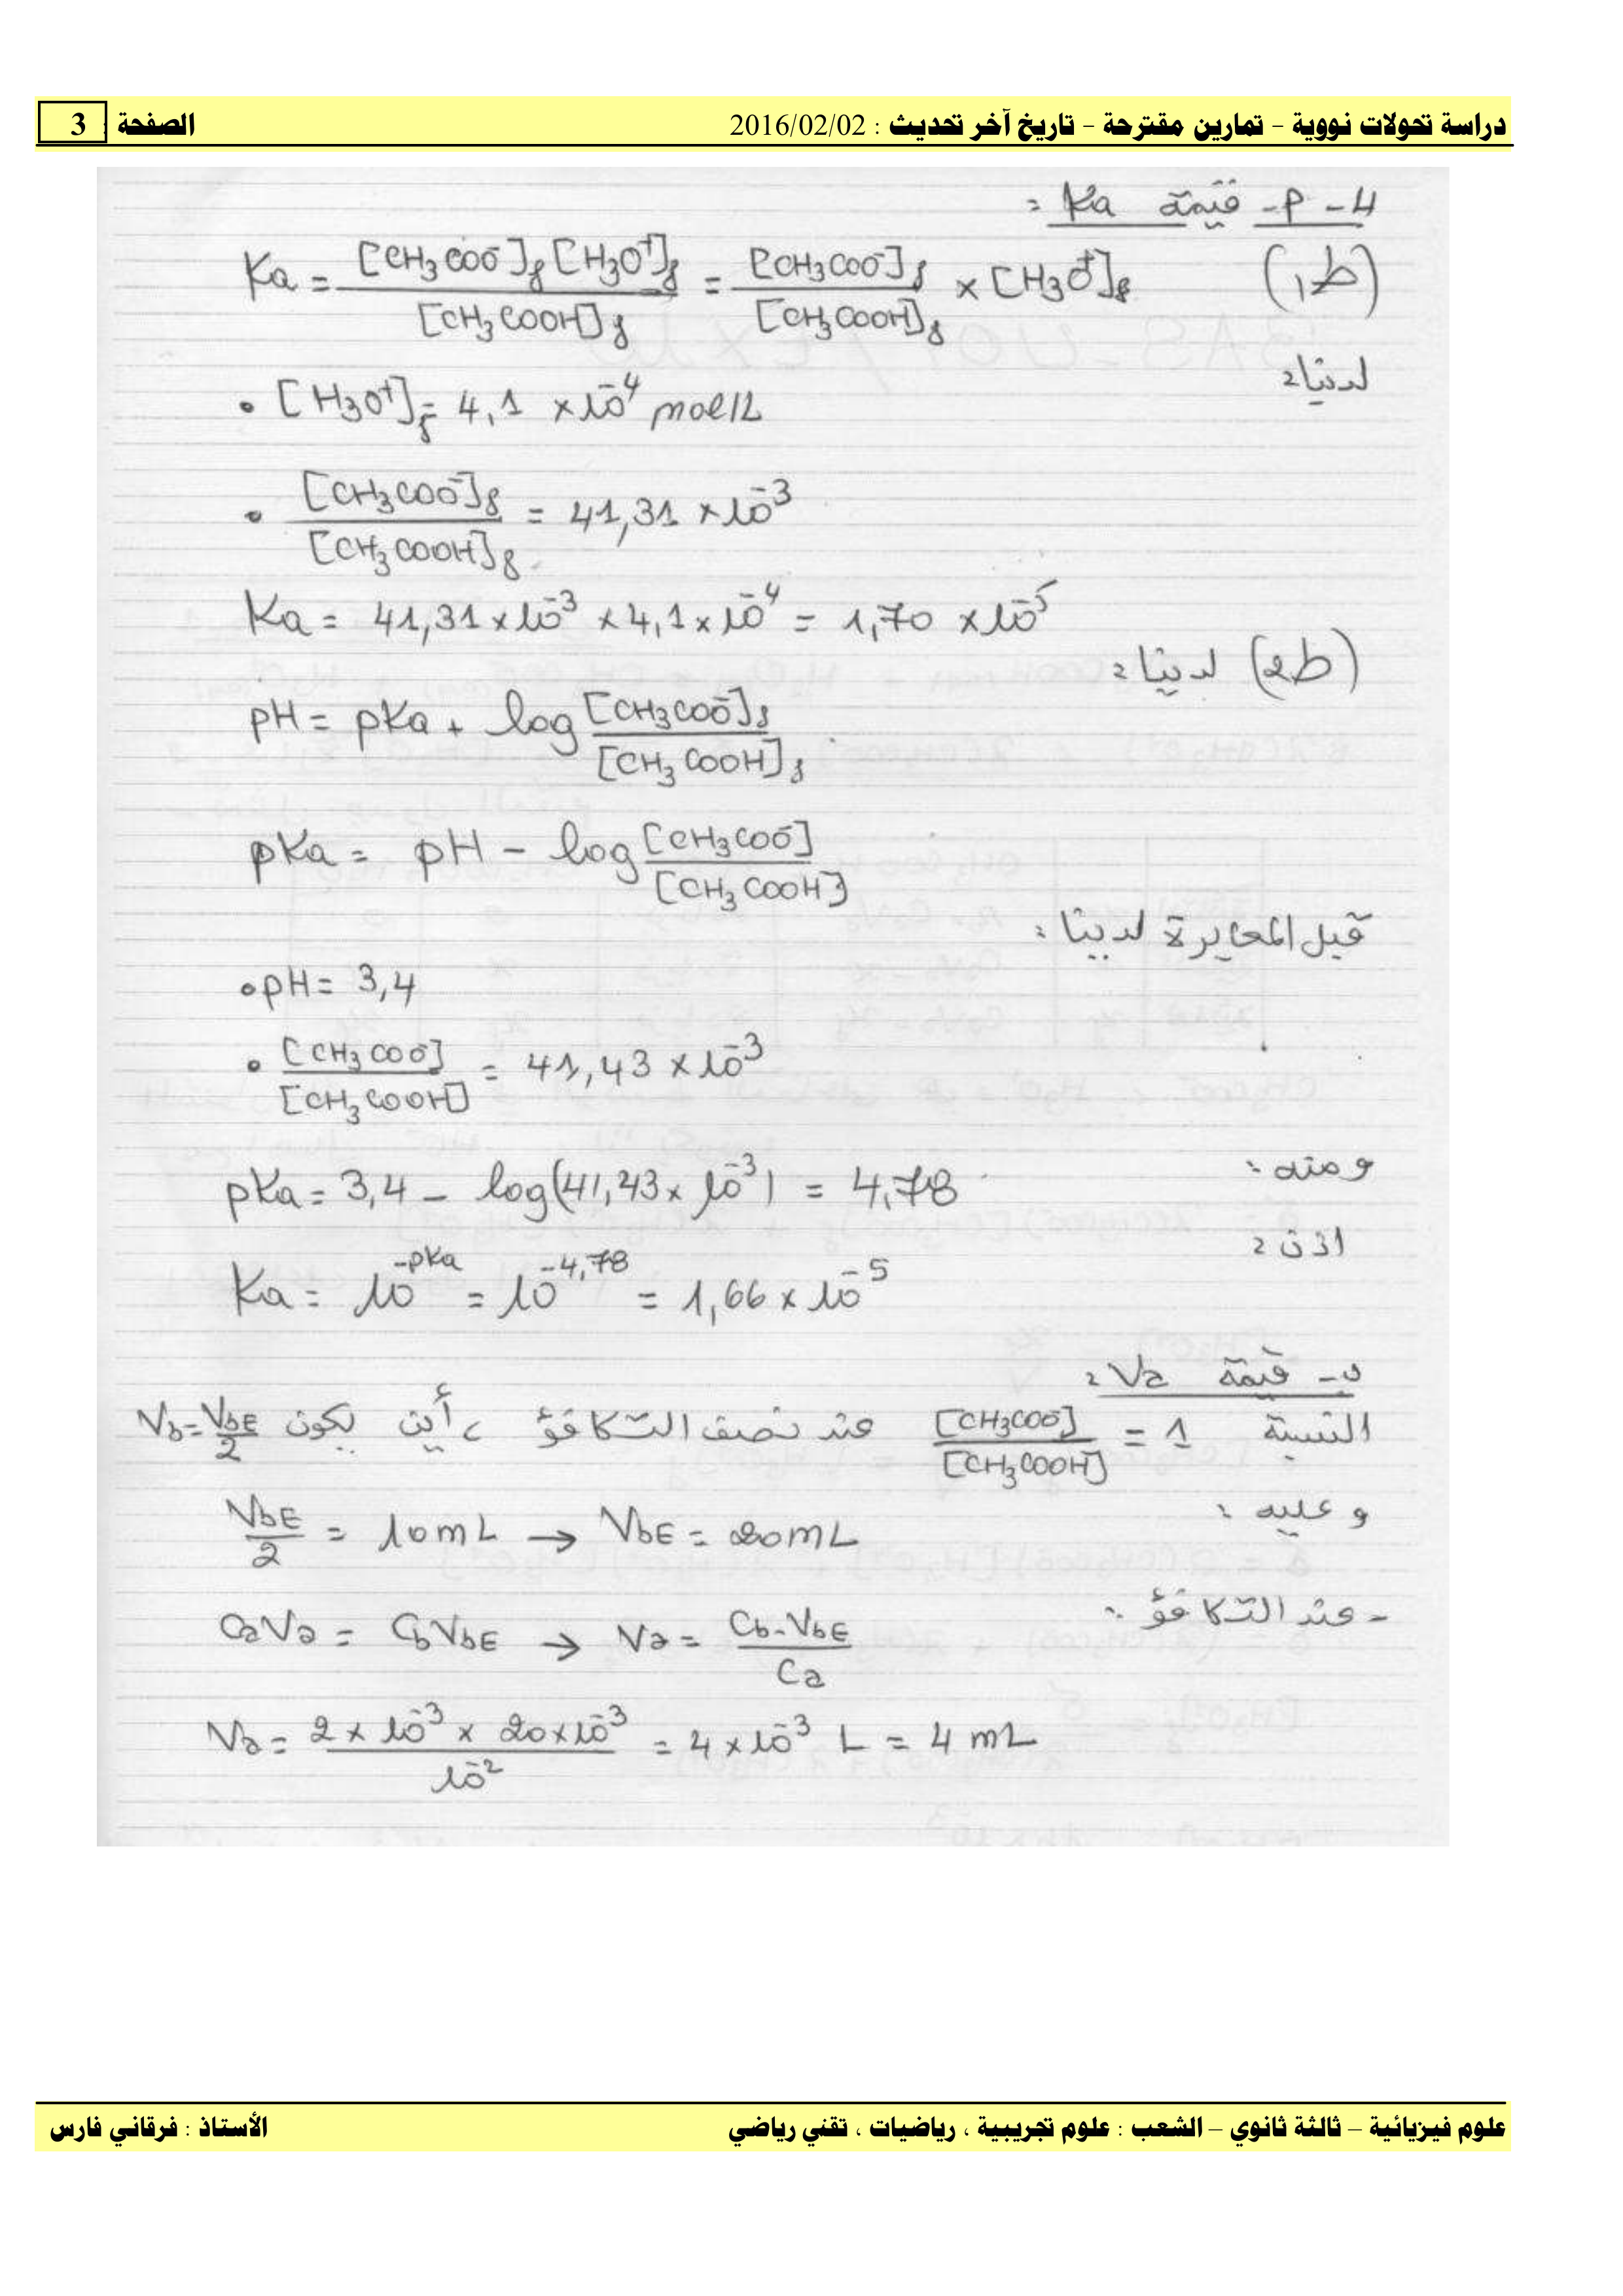 دراسة تحولات نووية – تمارين مقترحة – تاريخ آخر تحديث : 2016/02/02 الصفحة : 3
4 - أ - قيمة Ka :
ط1) Ka = [CH₃COO⁻]f [H₃O⁺]f / [CH₃COOH]f = [CH₃COO⁻]f / [CH₃COOH]f × [H₃O⁺]f
لدينا :
• [H₃O⁺]f = 4,1 × 10⁻⁴ mol/L
• [CH₃COO⁻]f / [CH₃COOH]f = 41,31 × 10⁻³
Ka = 41,31 × 10⁻³ × 4,1 × 10⁻⁴ = 1,70 × 10⁻⁵
ط2) لدينا :
pH = pKa + log [CH₃COO⁻]f / [CH₃COOH]f
pKa = pH - log [CH₃COO⁻] / [CH₃COOH]
قبل المعايرة لدينا :
• pH = 3,4
• [CH₃COO⁻] / [CH₃COOH] = 41,43 × 10⁻³
ومنه :
pKa = 3,4 - log(41,43 × 10⁻³) = 4,78
اذن :
Ka = 10^-pKa = 10^-4,78 = 1,66 × 10⁻⁵
ب - قيمة Va :
النسبة [CH₃COO⁻] / [CH₃COOH] = 1 عند نصف التكافؤ ، أين يكون Vb = VbE / 2
وعليه :
VbE / 2 = 10 mL → VbE = 20 mL
- عند التكافؤ :
CaVa = CbVbE → Va = Cb.VbE / Ca
Va = 2 × 10⁻³ × 20 × 10⁻³ / 10⁻² = 4 × 10⁻³ L = 4 mL
علوم فيزيائية – ثالثة ثانوي – الشعب : علوم تجريبية ، رياضيات ، تقني رياضي الأستاذ : فرقاني فارس